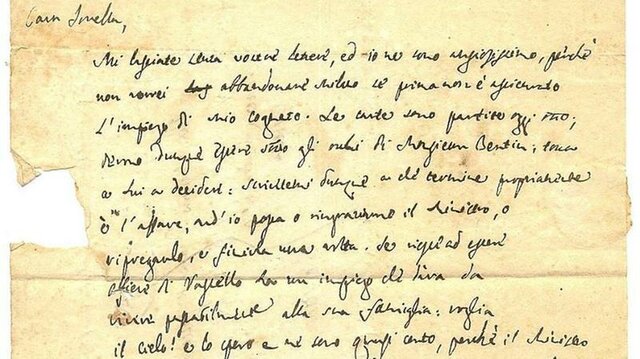 Cara Sorella,
Mi lasciate senza vostre lettere, ed io ne sono ansiosissimo, perchè
non vorrei abbandonare Milano se prima non è assicurato
L'impiego di mio cognato. Le carte sono partite oggi
dunque gli occhi di Monsieur Bentin; tocca
a lui a decidere: scrivetemi dunque a che termine propriamente
è l'affare, ond'io possa o ringraziarne il Ministro, o
ripregarlo, e finirla una volta. Se
di Vascello ha un impiego che dia da
vivere passabilmente alla sua famiglia: voglia
il cielo! e lo spero e ne sono quasi certo, perchè il Ministro